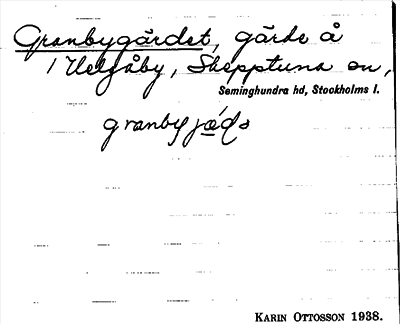 Granbygärdet, gärde å
1 Helgåby, Skepptuna sn,
Seminghundra hd, Stockholms l.
Karin Ottosson 1938.